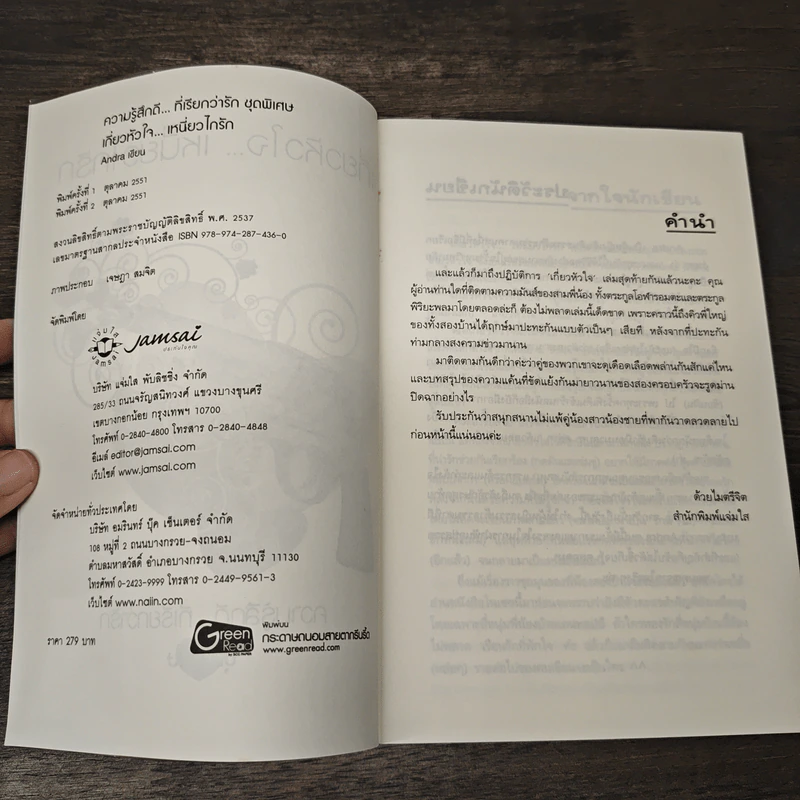 ความรู้สึกดี... ที่เรียกว่ารัก ชุดพิเศษ
เกี่ยวหัวใจ... เหนี่ยวไกรัก
Andra เขียน
พิมพ์ครั้งที่ 1 ตุลาคม 2551
พิมพ์ครั้งที่ 2 ตุลาคม 2551
สงวนลิขสิทธิ์ตามพระราชบัญญัติลิขสิทธิ์ พ.ศ. 2537
เลขมาตรฐานสากลประจำหนังสือ ISBN 978-974-287-436-0
ภาพประกอบ เจษฎา สมจิต
จัดพิมพ์โดย
แจ่มใส
Jamsai
Jamsai
บริษัท แจ่มใส พับลิชชิ่ง จำกัด
285/33 ถนนจรัญสนิทวงศ์ แขวงบางขุนศรี
เขตบางกอกน้อย กรุงเทพฯ 10700
โทรศัพท์ 0-2840-4800 โทรสาร 0-2840-4848
อีเมล์ editor@jamsai.com
เว็บไซต์ www.jamsai.com
จัดจำหน่ายทั่วประเทศโดย
บริษัท อมรินทร์ บุ๊ค เซ็นเตอร์ จำกัด
108 หมู่ที่ 2 ถนนบางกรวย-จงถนอม
ตำบลมหาสวัสดิ์ อำเภอบางกรวย จ.นนทบุรี 11130
โทรศัพท์ 0-2423-9999 โทรสาร 0-2449-9561-3
เว็บไซต์ www.naiin.com
ราคา 279 บาท
Green
Read
พิมพ์บน
กระดาษถนอมสายตากรีนรี้ด
www.greenread.com
คำนำ
และแล้วก็มาถึงปฏิบัติการ 'เกี่ยวหัวใจ' เล่มสุดท้ายกันแล้วนะคะ คุณ
ผู้อ่านท่านใดที่ติดตามความมันส์ของสามพี่น้อง ทั้งตระกูลโอฬารอมตะและตระกูล
พิริยะพลมาโดยตลอดล่ะก็ ต้องไม่พลาดเล่มนี้เด็ดขาด เพราะคราวนี้ถึงคิวพี่ใหญ่
ของทั้งสองบ้านได้ฤกษ์มาปะทะกันแบบตัวเป็นๆ เสียที หลังจากที่ปะทะกัน
ท่ามกลางสงครามข่าวมานาน
มาติดตามกันดีกว่าค่ะว่าคู่ของพวกเขาจะดุเดือดเลือดพล่านกันสักแค่ไหน
และบทสรุปของความแค้นที่ขัดแย้งกันมายาวนานของสองครอบครัวจะรูดม่าน
ปิดฉากอย่างไร
รับประกันว่าสนุกสนานไม่แพ้คู่น้องสาวน้องชายที่พากันวาดลวดลายไป
ก่อนหน้านี้แน่นอนค่ะ
ด้วยไมตรีจิต
สำนักพิมพ์แจ่มใส